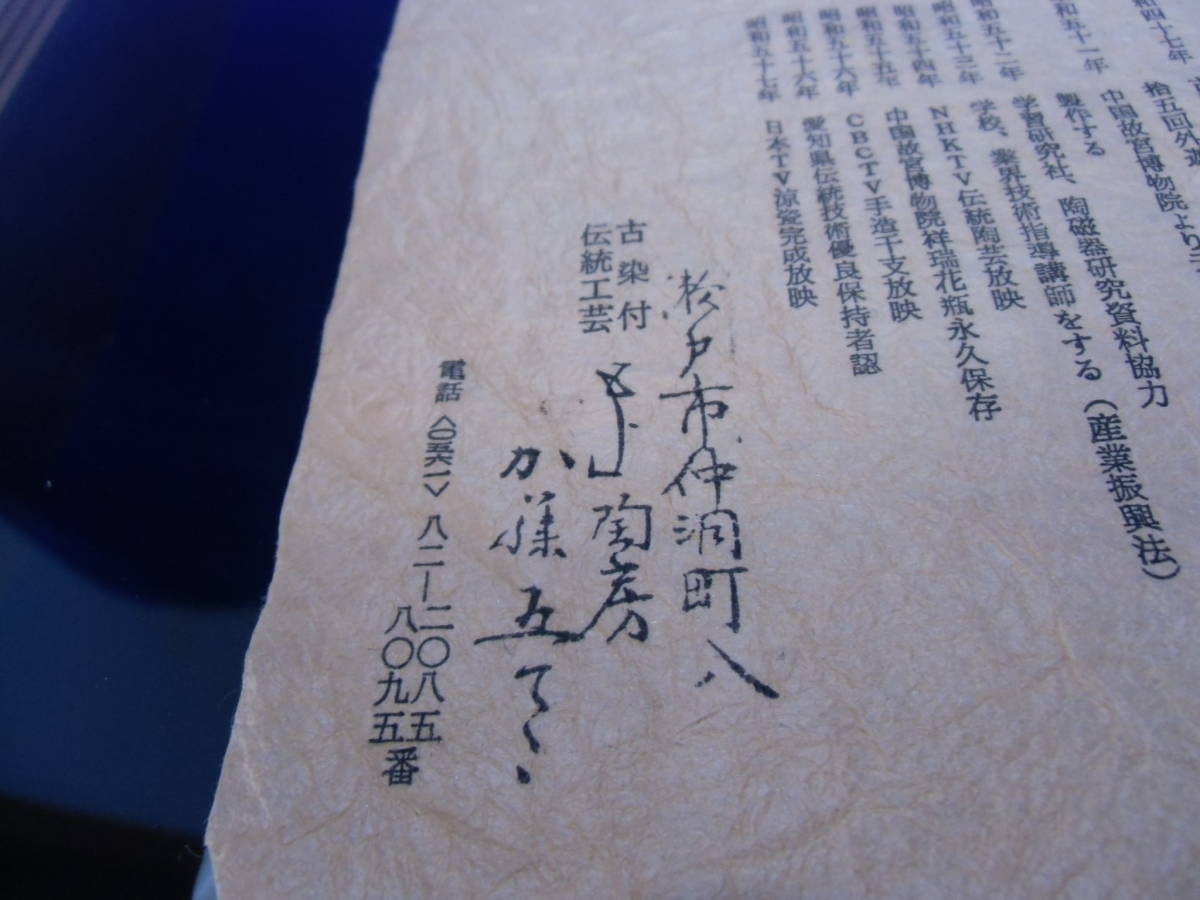 和四十七年 拾五回外遊
和五十一年 中国故宮博物院より
製作する
昭和五十二年 学習研究社、陶磁器研究資料協力
昭和五十三年 学校、業界技術指導講師をする（産業振興法）
昭和五十四年 NHKTV伝統陶芸放映
昭和五十五年 中国故宮博物院祥瑞花瓶永久保存
昭和五十六年 CBCTV手造干支放映
昭和五十六年 愛知県伝統技術優良保持者認
昭和五十七年 日本TV涼瓷完成放映
瀬戸市仲洞町八
古染付
伝統工芸
陶房
加藤五
電話〈〇五六一〉八二―二〇八五
八〇九五番